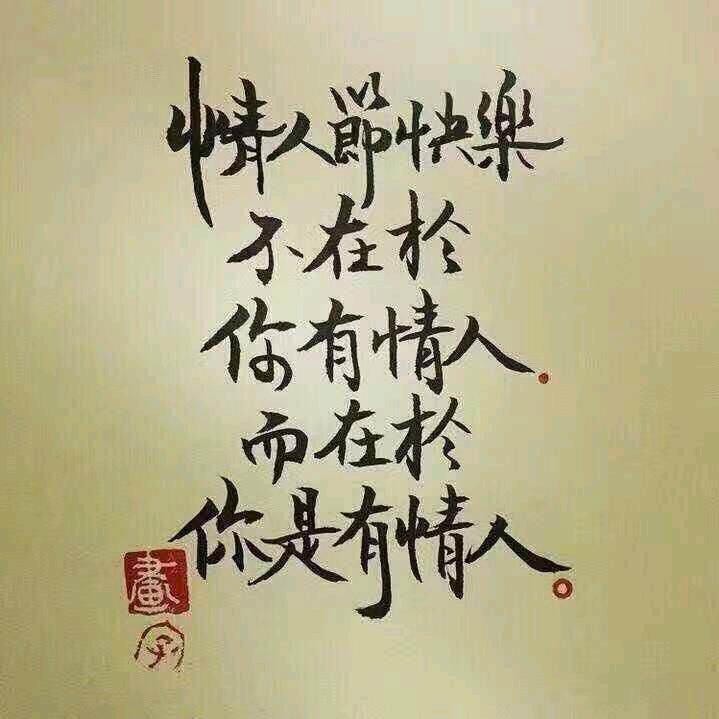 情人節快樂
不在於
你有情人.
而在於
你是有情人。
畫
字